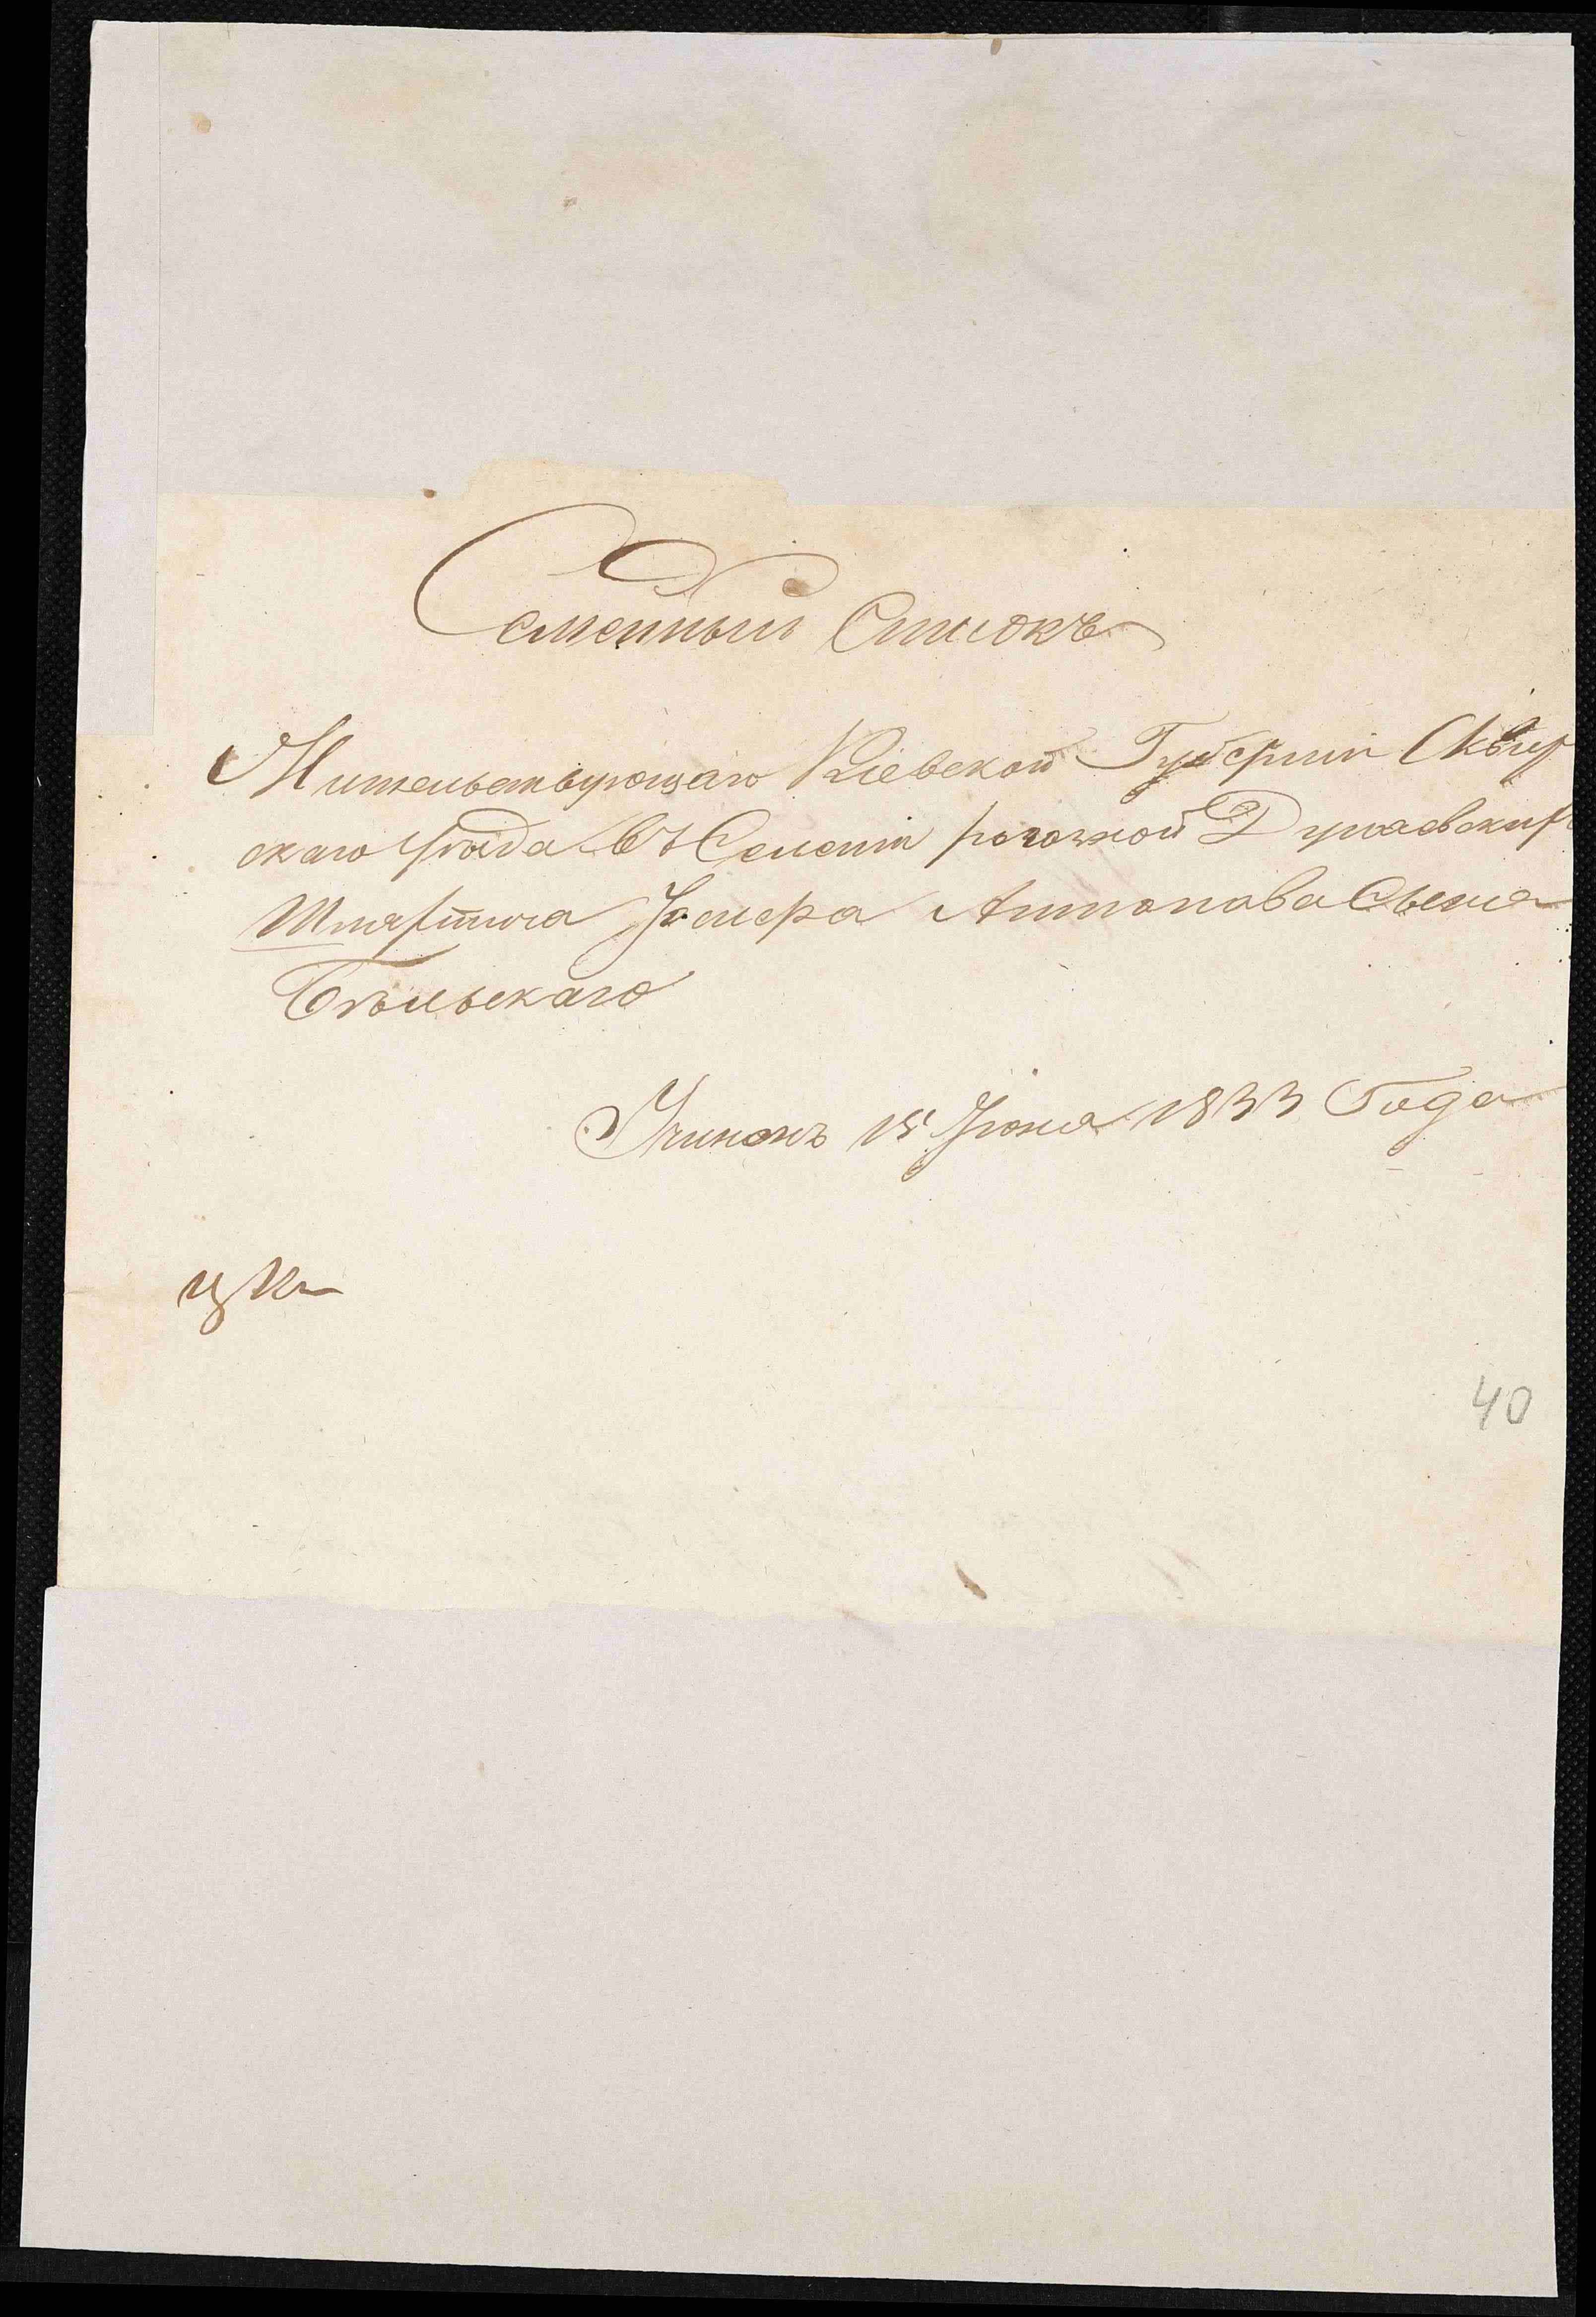 Семейный Списокъ
Жительствующаго Кіевской Губерніи Сквир
скаго уѣзда въ Селеніи Дунаевски
Шляхтича Антонова Сына
Бѣльскаго
Учинонъ 15 Іюня 1833 Года
40